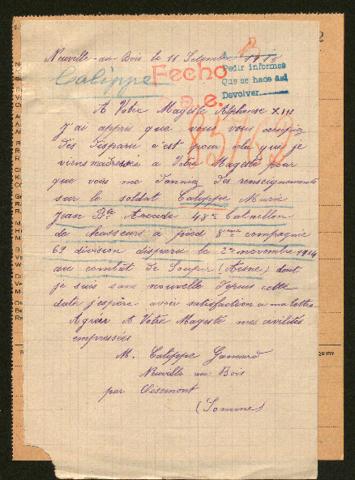 Neuville-au Bois le 11 Setembre 1915
Calippe
Fecho
Pedir informes
Que se hace así
Devolver.
A Votre Magesté Alphonse XIII
J'ai appris que vous vous occupiez
des disparus c'est pour cela que je
viens m'adresser à Votre Magesté pour
que vous me donniez des renseignements
sur le soldat Calippe Marie
Jean Bte 48e Bataillon
de chasseurs à pied 8eme compagnie
69 division disparu le 2 novembre 1914
au combat de Soupir (Aisne) dont
je suis sans nouvelle depuis cette
date j'espère avoir satisfaction a ma lettre
Agréer A Votre Magesté mes civilités
empressées
M. Calippe
Neuville au Bois
par Oisemont
(Somme)